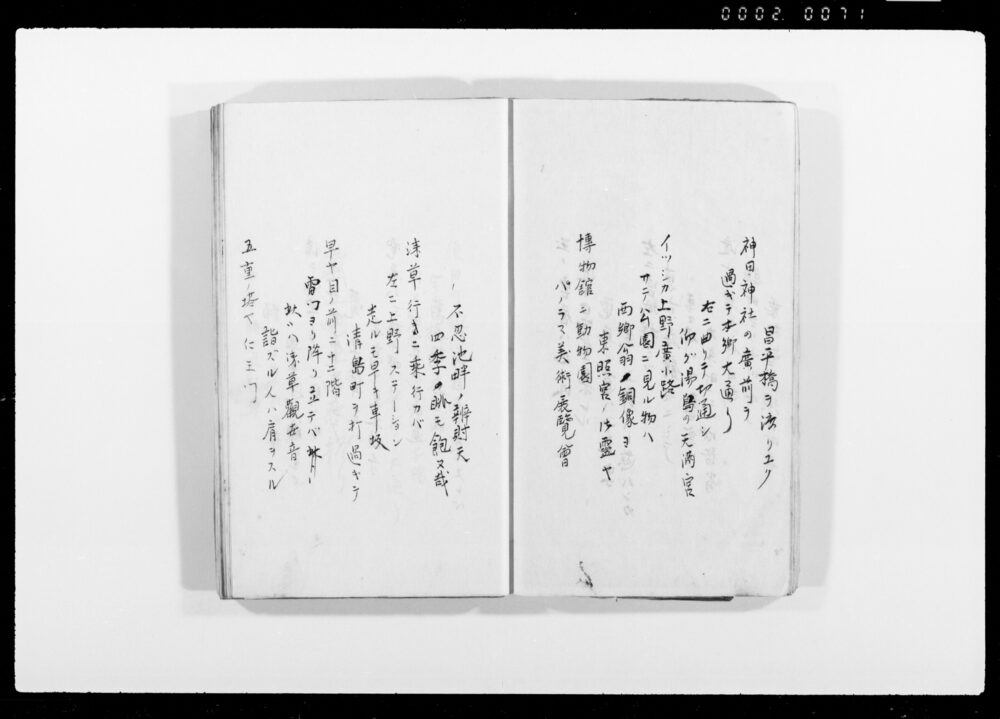 0002 0071
昌平橋ヲ渡リユク
神田神社の廣前ヲ
過ギテ本郷大通り
右ニ曲リテ切通シ
仰グ湯島の天満宮
イツシカ上野廣小路
サテ公園ニ見ル物ハ
西郷翁ノ銅像ヨ
東照宮ノ御霊ヤ
博物館ニ動物園
パノラマ美術展覧會
不忍池畔ノ辨財天
四季ノ眺モ飽ヌ哉
淺草行きニ乗行カバ
左ニ上野ステーシヨン
走ルモ早キ車坂
清島町ヲ打過ギテ
早ヤ目ノ前ニ十二階
雷門ヨリ降り立テバ
ハ淺草觀世音
詣ズル人ハ肩ヲスル
五重ノ塔ヤ仁王門